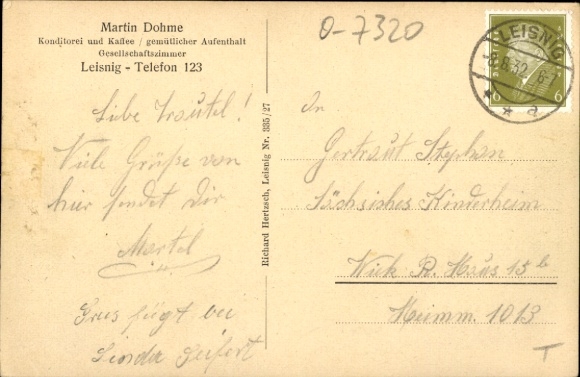 Martin Dohme
Konditorei und Kaffee / gemütlicher Aufenthalt
Gesellschaftszimmer
Leisnig - Telefon 123
Liebe Trautel!
Viele Grüße von
hier sendet Dir
Martel
Grus fügt bei
Linda Seifert
Richard Hertzsch, Leisnig Nr. 335/27
O-7320
LEISNIG
6.32. 6-7
a
6 6
In
Gertraut Stephan
Sächsisches Kinderheim
Wiek R. Haus 15 b
Heimm. 1013
T